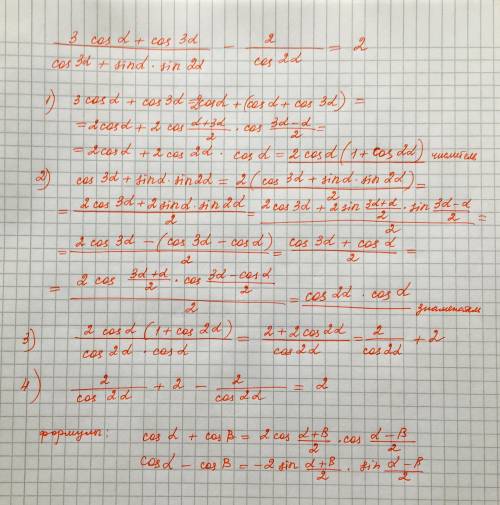 (3 cosα + cos 3α)/(cos3α + sinα · sin 2α) − 2/(cos 2α) = 2
1) 3 cosα + cos 3α = 2cosα + (cosα + cos 3α) =
= 2cosα + 2 cos (α+3α)/2 · cos (3α−α)/2 =
= 2cosα + 2 cos 2α · cosα = 2 cosα (1 + cos 2α) числитель
2) cos 3α + sinα · sin2α = 2(cos3α + sinα · sin 2α)/2 =
= (2 cos 3α + 2 sinα · sin 2α)/2 = (2 cos 3α + 2 sin (3α+α)/2 · sin (3α−α)/2)/2 =
= (2 cos 3α − (cos 3α − cosα))/2 = (cos 3α + cosα)/2 =
= (2 cos (3α+α)/2 · cos (3α−cosα)/2)/2 = cos 2α · cosα знаменатель
3) (2 cosα (1 + cos 2α))/(cos 2α · cosα) = (2 + 2 cos2α)/(cos2α) = 2/(cos2α) + 2
4) 2/(cos 2α) + 2 − 2/(cos2α) = 2
формулы: cosα + cosβ = 2 cos (α+β)/2 · cos (α−β)/2
cosα − cosβ = −2 sin (α+β)/2 · sin (α−β)/2